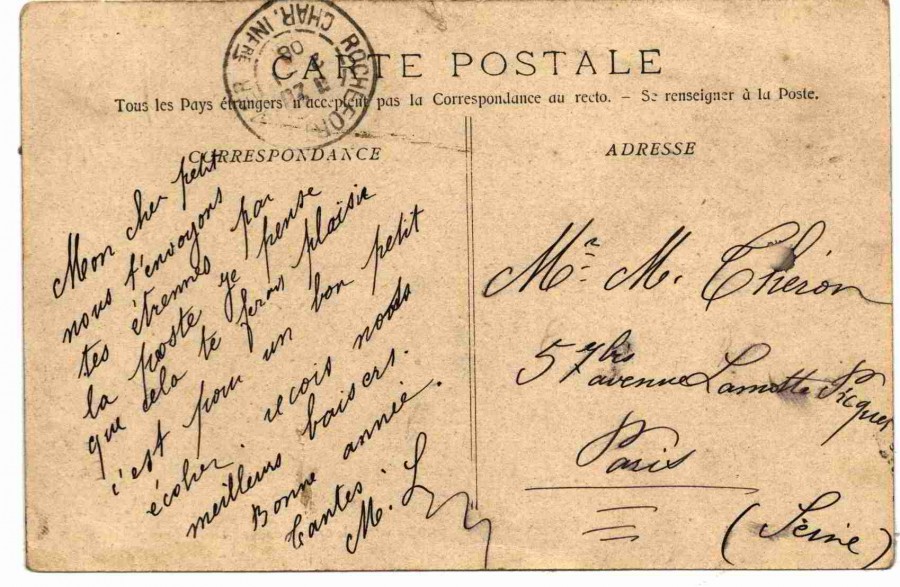 CARTE POSTALE
Tous les Pays étrangers n'acceptent pas la Correspondance au recto. — Se renseigner à la Poste.
ROCHEFORT
CHAR. INFRE
08
CORRESPONDANCE
Mon cher petit
nous t'envoyons
tes étrennes par
la poste je pense
que cela te feras plaisir
c'est pour un bon petit
écolier. recois nos
meilleurs baisers.
Bonne année.
tantes.
M. L
ADRESSE
Mr. M. Théron
57 bis
avenue Lamotte Picquet
Paris
(Seine)